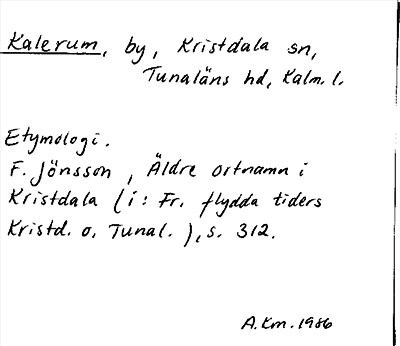 Kalerum, by, Kristdala sn,
Tunaläns hd, Kalm. l.
Etymologi.
F. Jönsson, Äldre ortnamn i
Kristdala (i: Fr. flydda tiders
Kristd. o. Tunal.), s. 312.
A.Km. 1986